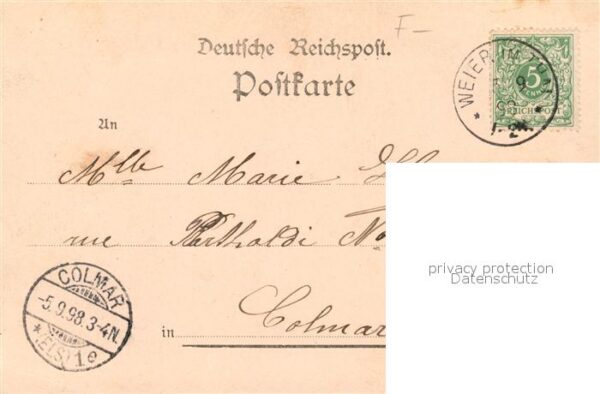 F-
Deutsche Reichspost.
Postkarte
WEIER IM TH
9
98
1-2N.
5
PFENNIG
REICHSPOST
An
Mlle Marie
rue Bartholdi No
in Colmar
COLMAR
-5.9.98.3-4N.
* (ELS) 1e
privacy protection
Datenschutz